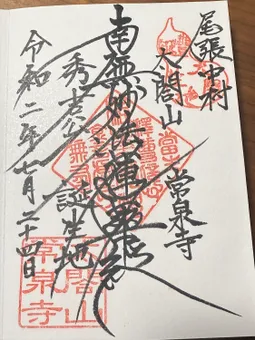 尾張中村
太閤山
常泉寺
南無妙法蓮華経
秀吉公
誕生地
令和二年七月二十四日
太閤山
常泉寺